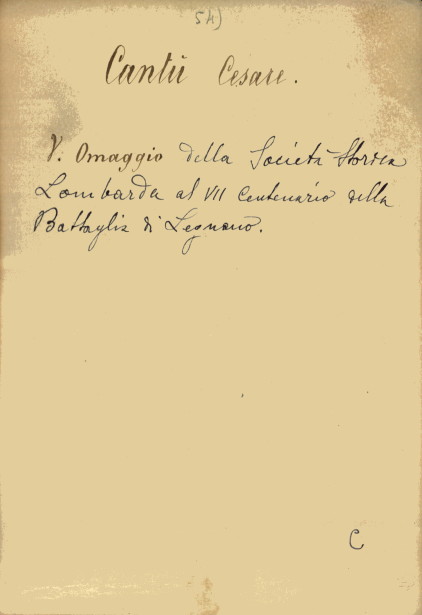 54)
Cantù Cesare.
V. Omaggio della Società Storica
Lombarda al VII Centenario della
Battaglia di Legnano.
C